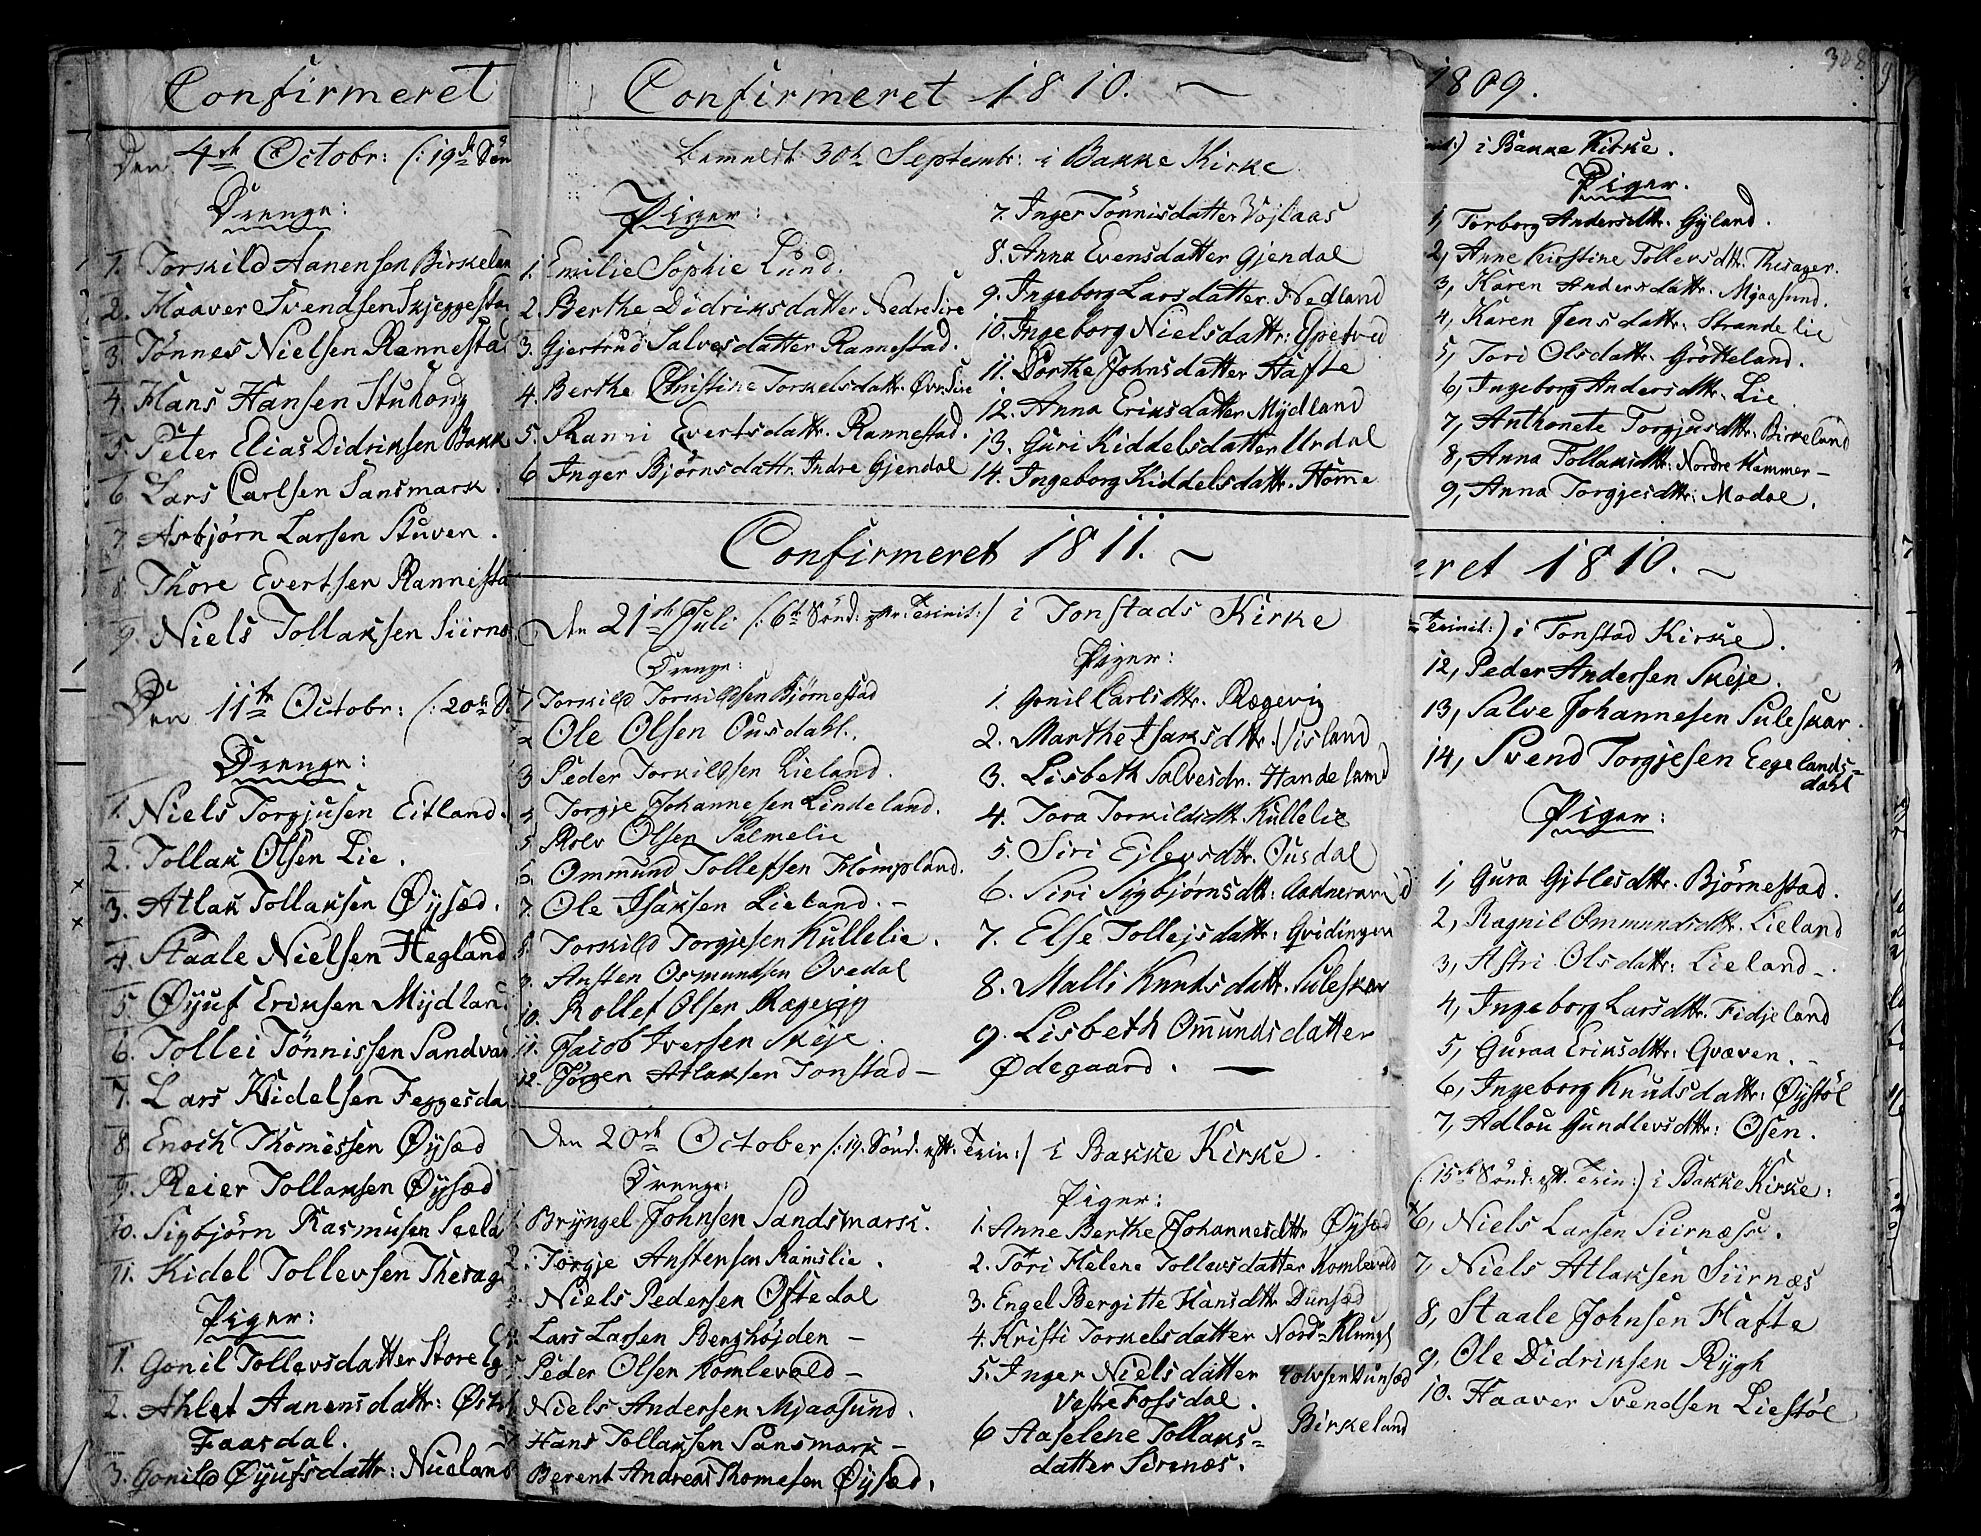 Confirmeret
Den 4de Octobr: (:19de Søn
Drenge:
1. Torkild Aanensen Birkelan
2. Haaver Svendsen Skjeggesta
3. Tönnes Nielsen Rannesta
4. Hans Hansen Stuhoug
5. Peter Elias Didriksen Bakk
6. Lars Carlsen Sansmark.
7. Asbjörn Larsen Stuven.
8. Thore Evertsen Rannesta
9. Niels Tollaksen Siirn
Den 11te Octobr: (:20de S
Drenge:
1. Niels Torgjusen Eitland.
2. Tollak Olsen Lie.
3. Atlak Tollaksen Øysæd.
4. Staale Nielsen Hegland
5. Øyuf Eriksen Mydlan
6. Tollei Tönnissen Sandva
7. Lars Kidelsen Feggesda
8. Enoch Thomessen Øysæd
9. Reier Tollaksen Øysæd
10. Sigbjörn Rasmusen Seela
11. Kidel Tollevsen Thesag
Piger:
1. Gonil Tollevsdatter Store Eg
2. Ahlet Aanensdattr: Øst
Faasdal.
3. Gonild Øyufsdattr: Nueland
Confirmeret 1810. ~
bemeldte 30te Septembr: i Bakke Kirke
Piger:
1. Emilie Sophie Lund.
2. Berthe Didriksdatter Nedre Sire
3. Gjertrud Salvesdatter Rannestad.
4. Berthe Christine Torkelsdattr. Øvr. Sire
5. Ranni Evertsdattr. Rannestad.
6 Inger Björnsdattr. Indre Gjendal
7. Inger Tönnisdatter Vojlaas
8. Anna Evensdatter Gjendal
9. Ingeborg Larsdatter Nedland
10. Ingeborg Nielsdattr: Espetved
11. Dorthe Johnsdatter Hafte
12. Anna Eriksdatter Mydland
13. Guri Kiddelsdatter Urdal
14. Ingeborg Kiddelsdattr. Home
Confirmeret 1811. ~
Den 21de Juli (:6te Sönd: eftr. Trinit:) i Tonstads Kirke
Drenge:
1 Torkild Torkildsen Bjørnestad
2 Ole Olsen Ousdahl.
3 Peder Torkildsen Lieland.
4 Torgje Johannesen Lindeland.
5 Rolv Olsen Salmelie
6. Ommund Tollefsen Hompland.
7. Ole Isaksen Lieland. -
8. Torkild Torgjesen Kullelie.
9. Ansten Osmundsen Ovedal
10. Rollef Olsen Rægevig
11. Jacob Iversen Skeje.
12. Jörgen Atlaksen Tonstad -
Piger:
1. Gonil Carlsdttr. Rægevig
2. Marthe Isaksdttr. Sisland
3. Lisbeth Salvesdr. Handeland
4. Tora Torkildsdtt. Kullelie
5. Siri Ejlevsdttr. Ousdal
6. Siri Sigbjørnsdtt: Aadneram
7. Else Tollejsdattr: Gvidingen
8. Malli Knudsdattr. Suleskar
9. Lisbeth Omundsdatter
Ødegaard. —
Den 20de October (:19. Sönd: eftr. Trin:) i Bakke Kirke.
Drenge:
1. Bryngel Johnsen Sandsmark.
2. Torgje Anstensen Ramslie.
3. Niels Pedersen Oftedal
4. Lars Larsen Berghöjden -
5 Peder Olsen Komlevold -
Niels Andersen Mjaasund.
7 Hans Tollaksen Sansmark -
Berent Andreas Thomesen Øysæd.
Piger:
1. Anne Berthe Johannesdttr Øysæd
2. Tori Helene Tollevsdatter Komlevold
3. Engel Bergitte Hansdttr Dunsæd
4. Kristi Torkelsdatter Nord=Klungl
5. Inger Nielsdatter
Vestre Fossdal.
6 Aaselene Tollaks=
datter Sirenæs.
Rolvsen Dunsæd
Birkeland
308
1809.
init:) i Bakke Kirke.
Piger.
1, Torborg Andersdttr. Gyland.
2, Anne Kirstine Tollevsdttr. Thesager.
3, Karen Andersdattr. Mjaasund.
4, Karen Jensdattr. Strandelie
5, Tori Olsdattr. Grötteland.
6, Ingeborg Andersdttr. Lie
7, Anthonete Torgjusdttr. Birkeland
8, Anna Tollaksdttr: Nordre Hammer-
9, Anna Torgjesdttr: Modal.
eret 1810. ~
Trinit:) i Tonstad Kirke.
12, Peder Andersen Skeje.
13, Salve Johannesen Suleskar.
14, Svend Torgjesen Eegelands=
dahl
Piger:
1, Gura Gitlesdttr. Björnestad.
2, Ragnil Ommundsdttr. Lieland
3, Astri Olsdattr: Lieland-.
4, Ingeborg Larsdttr. Fidjeland
5, Guraa Eriksdttr: Gvæven. -
6, Ingeborg Knudsdattr: Øystöl
7, Adlou Gundlevsdttr: Osen.
(:15de Sönd: eftr. Trin:) i Bakke Kirke:
6, Niels Larsen Siirnæs.
7, Niels Atlaksen Siirnæs
8, Staale Johnsen Hafte
9, Ole Didriksen Rygh
10. Haaver Svendsen Liestöl